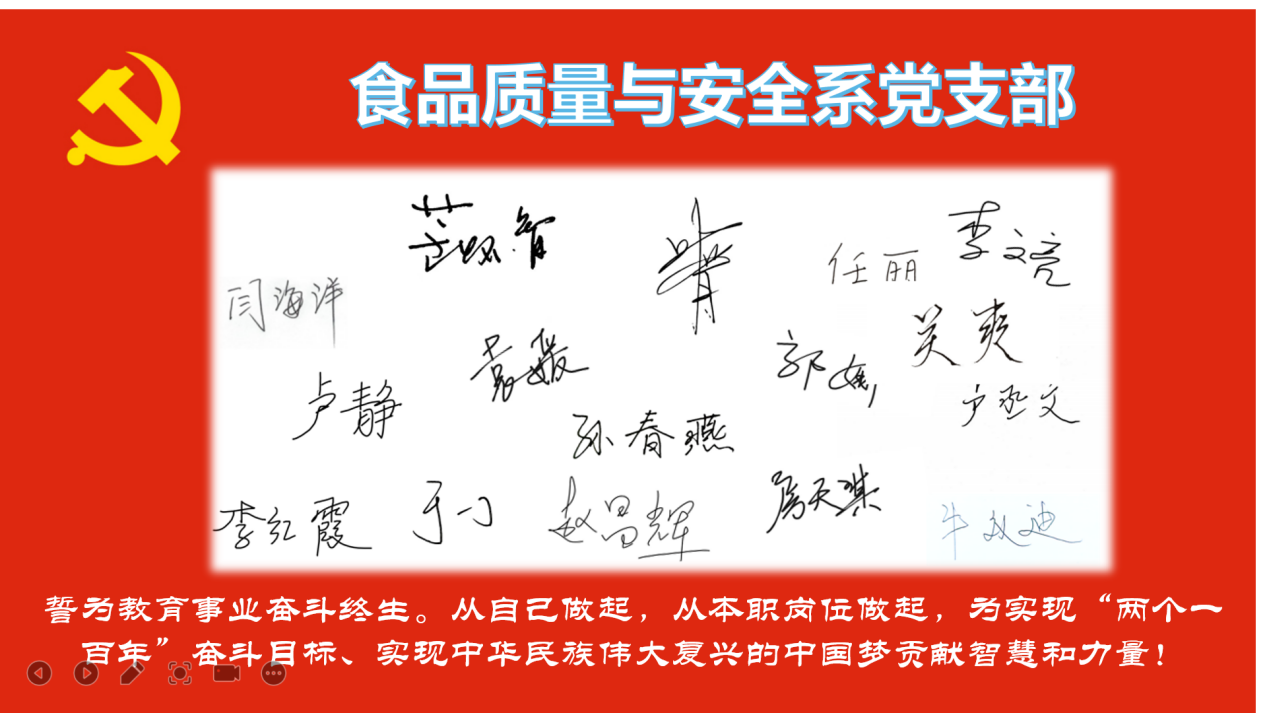 食品质量与安全系党支部
任丽
李文亮
闫海洋
吴爽
袁媛
郭
卢静
卢丞文
孙春燕
李红霞
于
赵昌辉
房天琪
牛 迪
誓为教育事业奋斗终生。从自己做起，从本职岗位做起，为实现“两个一
百年”奋斗目标、实现中华民族伟大复兴的中国梦贡献智慧和力量！